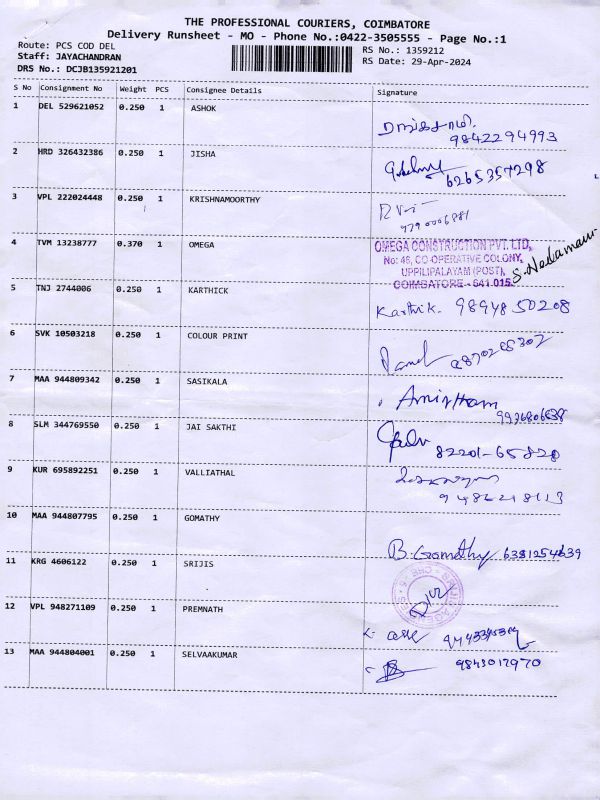 THE PROFESSIONAL COURIERS, COIMBATORE
Delivery Runsheet - MO - Phone No.:0422-3505555 - Page No.:1
Route: PCS COD DEL
RS No.: 1359212
Staff: JAYACHANDRAN
RS Date: 29-Apr-2024
DRS No.: DCJB135921201
S No Consignment No Weight PCS Consignee Details Signature
1 DEL 529621052 0.250 1 ASHOK
ராஜ்கசாமி.
9842294993
2 HRD 326432386 0.250 1 JISHA
6265357298
3 VPL 222024448 0.250 1 KRISHNAMOORTHY
4 TVM 13238777 0.370 1 OMEGA
OMEGA CONSTRUCTION PVT. LTD,
No: 46, CO-OPERATIVE COLONY,
UPPILIPALAYAM (POST),
COIMBATORE - 641 015.
5 TNJ 2744006 0.250 1 KARTHICK
Karthik. 9894850208
6 SVK 10503218 0.250 1 COLOUR PRINT
7 MAA 944809342 0.250 1 SASIKALA
Amirtham
8 SLM 344769550 0.250 1 JAI SAKTHI
82201-65820
9 KUR 695892251 0.250 1 VALLIATHAL
9486218113
10 MAA 944807795 0.250 1 GOMATHY
B. Gomathy 6381254639
11 KRG 4606122 0.250 1 SRIJIS
12 VPL 948271109 0.250 1 PREMNATH
13 MAA 944804001 0.250 1 SELVAAKUMAR
9843017970